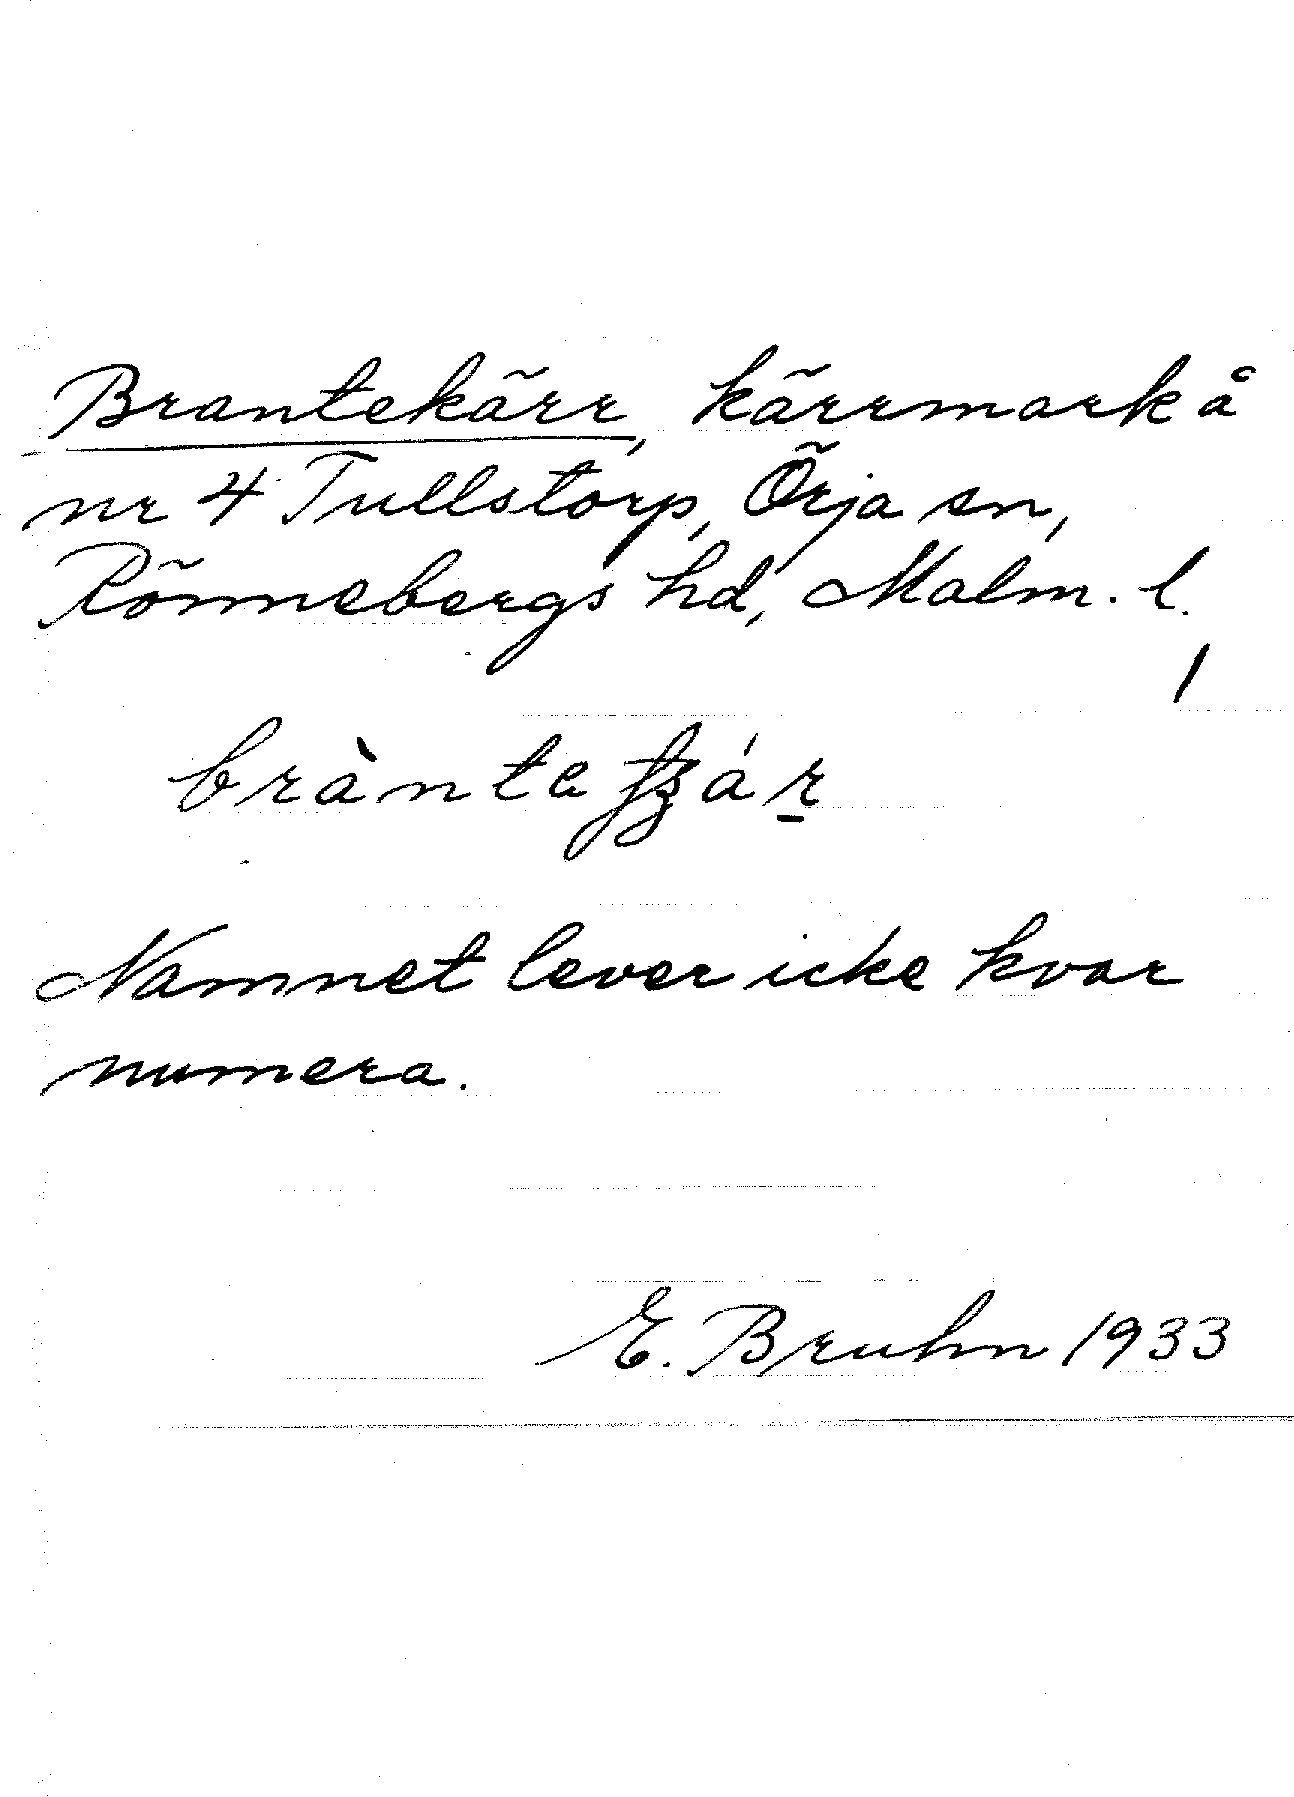 Brantekärr, kärrmark å
nr 4 Tullstorp, Örja sn,
Rönnebergs hd, Malm. l.
Namnet lever icke kvar
numera.
E. Bruhn 1933